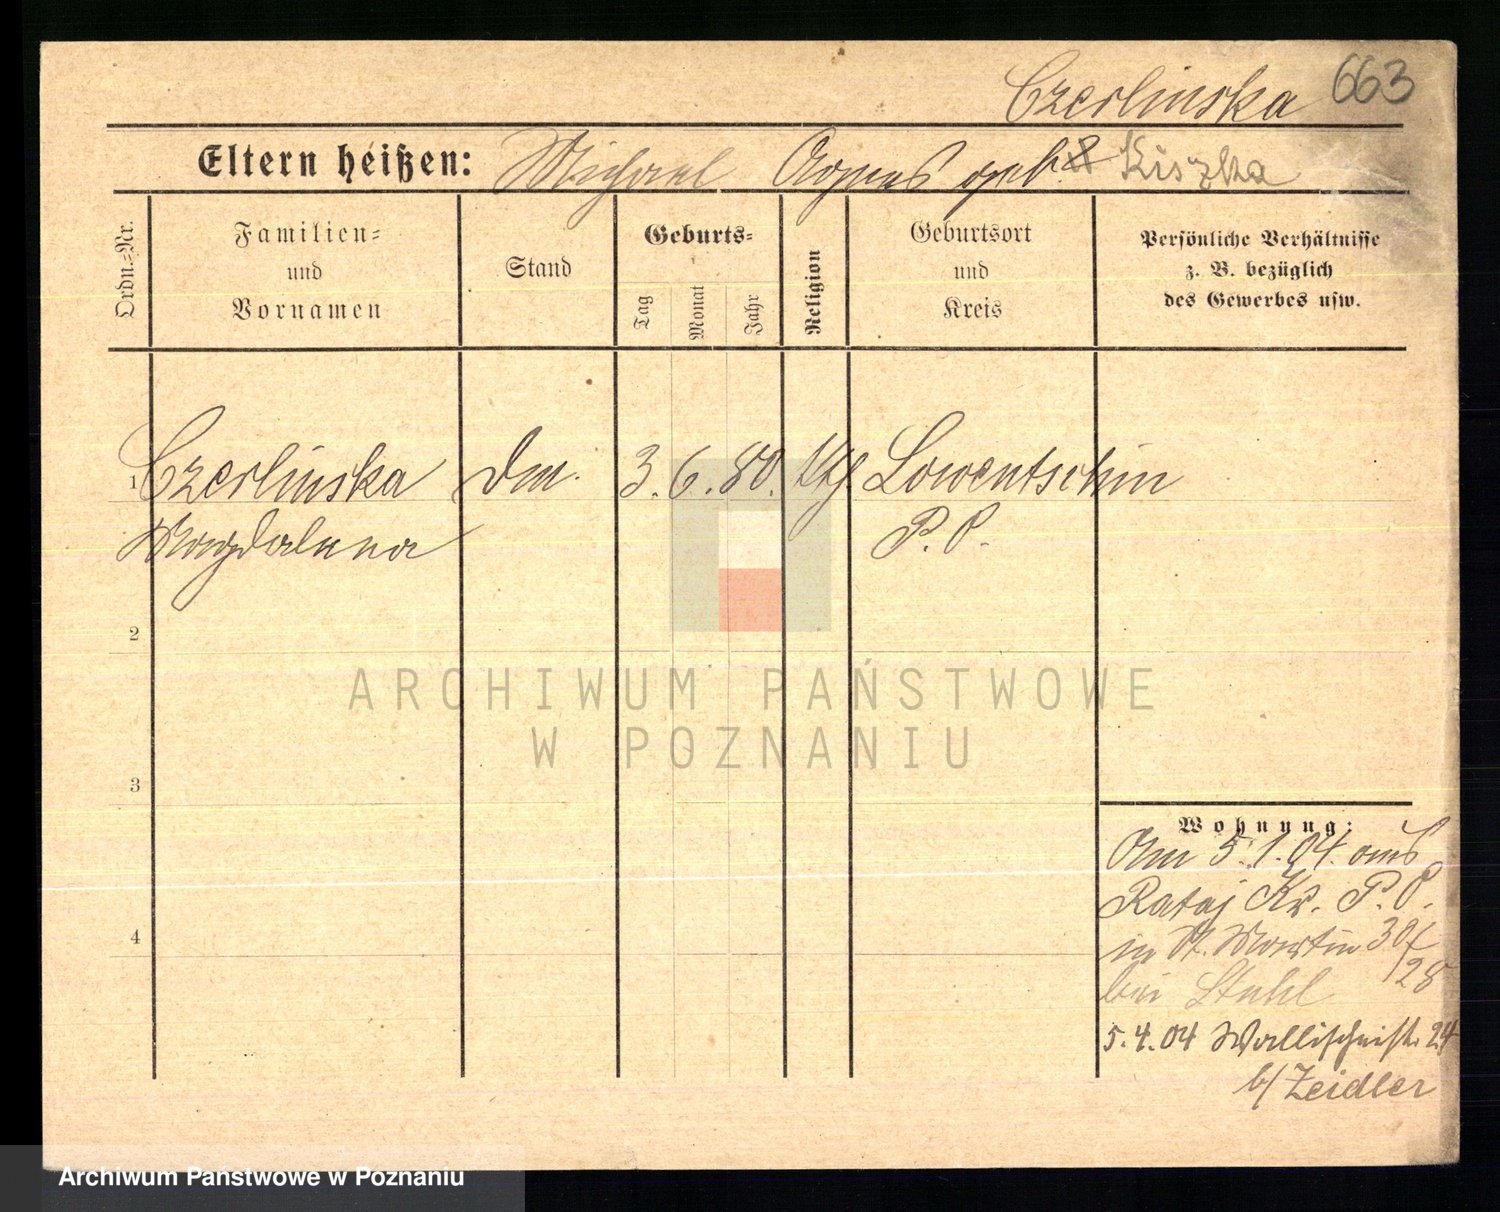 Czerlinska 663
Eltern heißen: Michael Agnes geb. Kiszka
Ordn.-Nr.
Familien-
und
Vornamen
Stand
Geburts-
Tag
Monat
Jahr
Religion
Geburtsort
und
Kreis
Persönliche Verhältnisse
z. B. bezüglich
des Gewerbes usw.
1 Czerlinska Dm. 3. 6. 80. ktl Lowentschin
Magdalena P. O.
2
3
4
ARCHIWUM PAŃSTWOWE
W POZNANIU
Wohnung:
Am 5.1.04. aus
Rataj Kr. P. O.
in St. Martin
bei Stuhl
5.4.04 Wallischeistr. 24
b/ Zeidler
Archiwum Państwowe w Poznaniu